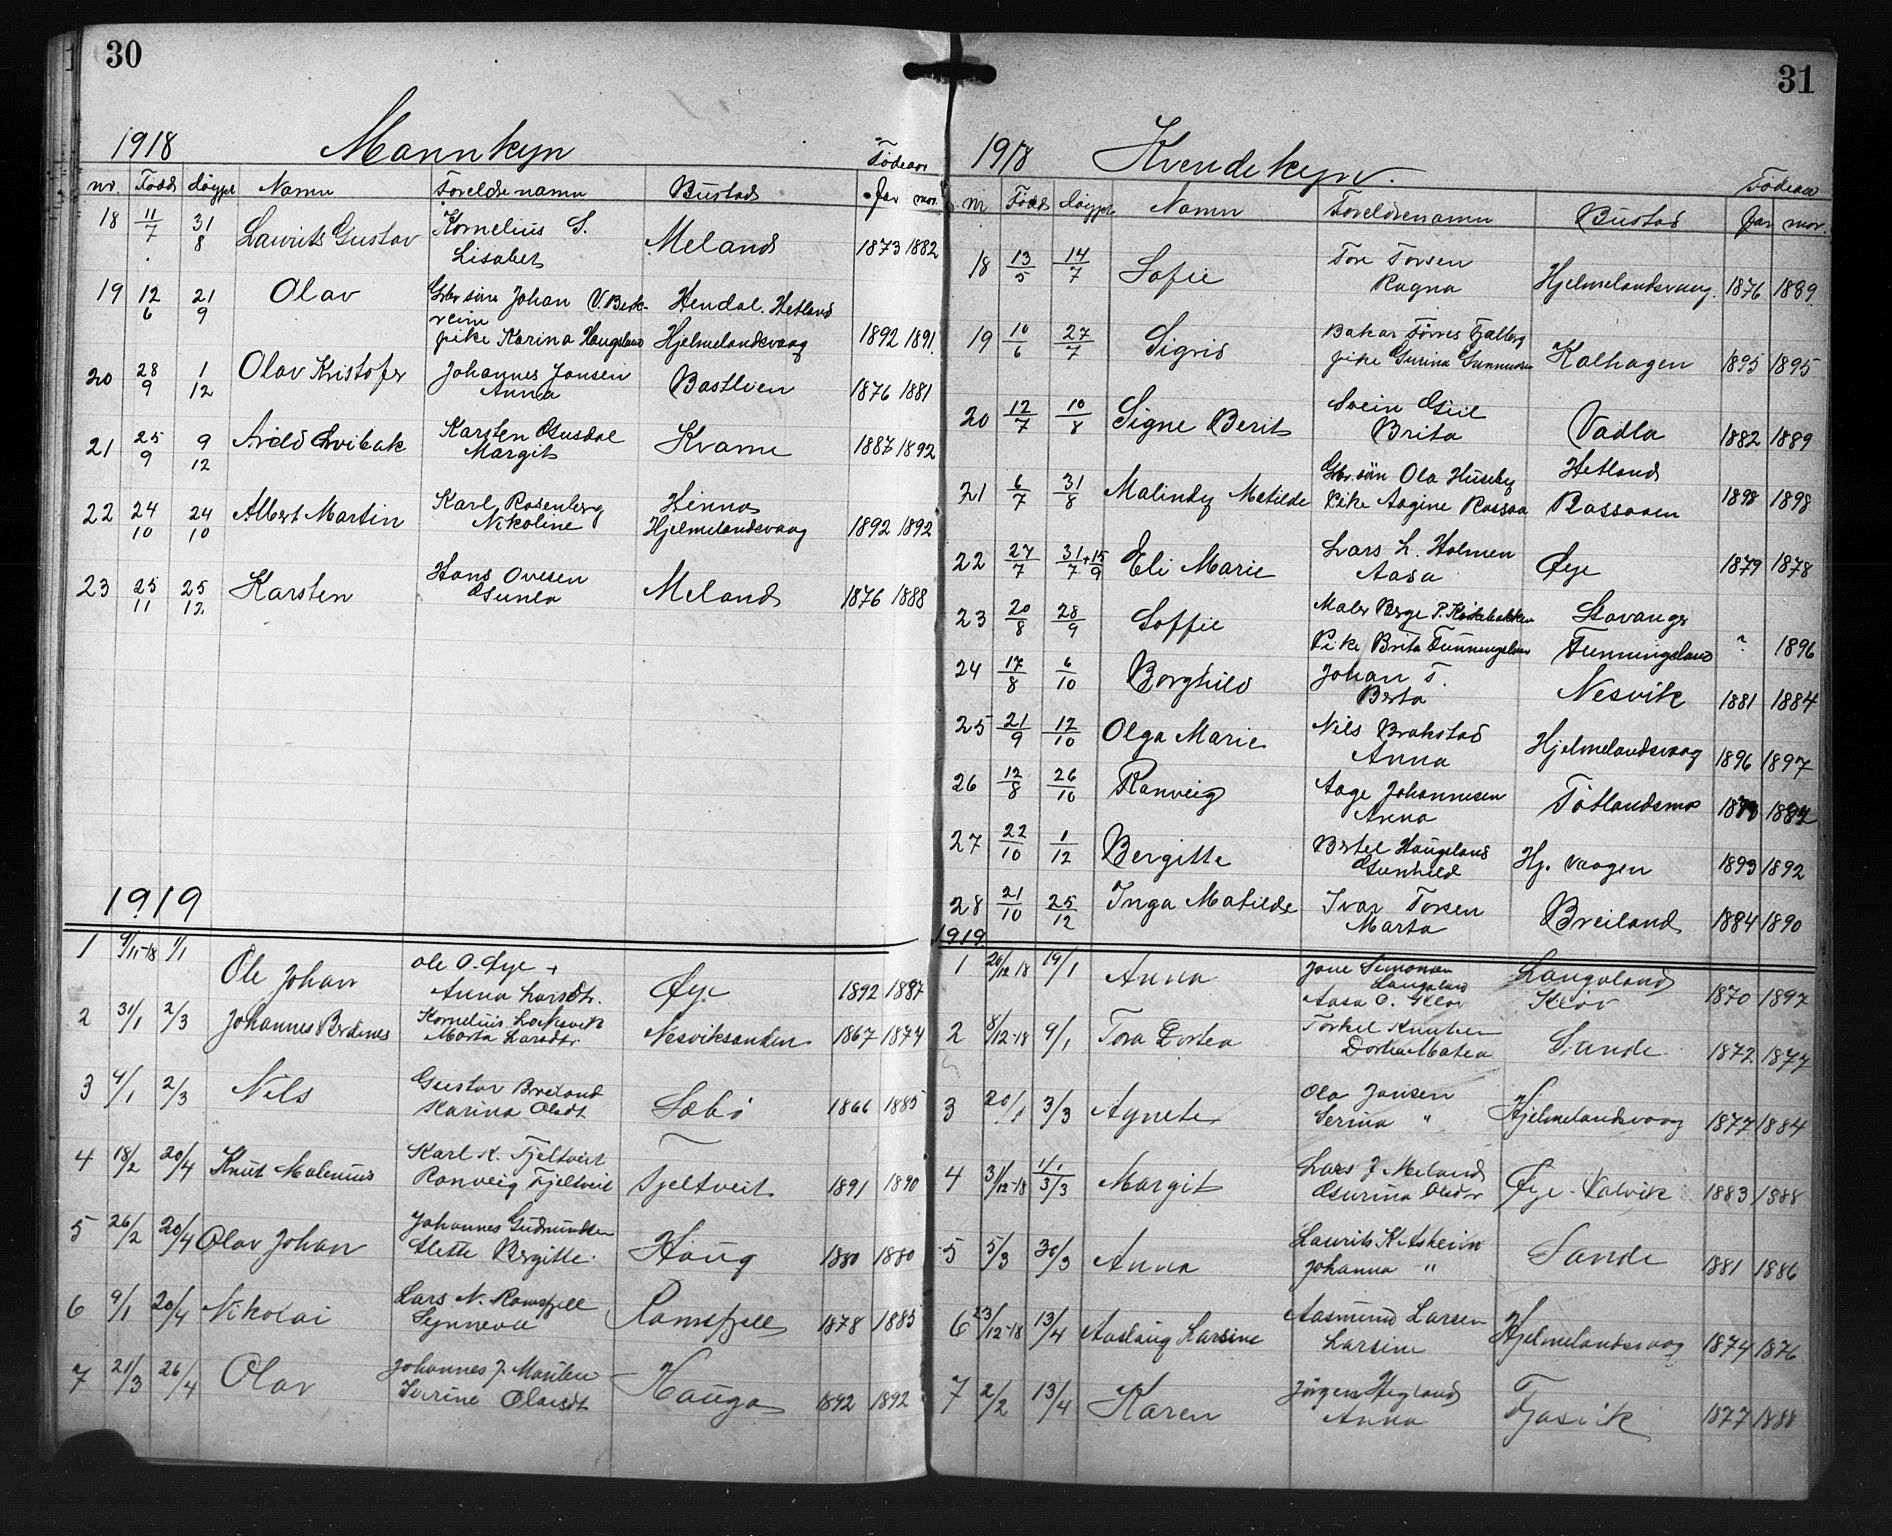 30
1918 Mannkyn
Fødeaar
nr. Fødd døypt Namn Foreldrenamn Bustad far mor.
18 11/7 31/8 Laurits Gustav Kornelius S. Meland 1873 1882
Lisabet
19 12/6 21/9 Olav Gbr.søn Johan V. Berk- Hendal. Hetland
reim
pike Karina Haugsland Hjelmelandsvaag 1892 1891.
20 28/9 1/12 Olav Kristofer Johannes Jansen Bastlien 1876 1881
Anna
21 25/9 9/12 Karsten Gusdal Kvame 1887 1892
Margit
22 24/10 24/10 Albert Martin Karl Rosenberg Hinna
Nikoline Hjelmelandsvaag 1892 1892
23 25/11 25/12 Karsten Hans Ovesen Meland 1876 1888
Gunla
1919
1 9/11-18 1/1 Ole Johan Ole O. Øye +
Anna Larsdtr. Øye 1892 1887
2 31/1 2/3 Johannes Berdines Kornelius Locksvik Nesviksanden 1867 1874
Marta Larsdtr.
3 4/1 2/3 Nils Gustav Breiland Sæbø 1866 1885
Karina Olsdt
4 18/2 20/4 Knut Malenius Karl K. Fjeltveit
Ranveig Fjeltveit Fjeltveit 1891 1890
5 26/2 20/4 Olav Johan Johannes Gudmundsen
Alette Bergitte. Haug 1880 1880
6 9/1 20/4 Nikolai Lars N. Ramsfjell Ramsfjell 1878 1885
Synneva
7 21/3 26/4 Olav Johannes J. Maulen Hauga 1892 1892
Serine Olavsdt
31
1918 Kvendekyn.
Fødeaar
nr Fødd døypt Namn Foreldrenamn Bustad far mor.
18 13/5 14/7 Sofie Tore Torsen Hjelmelandsvaag. 1876 1889.
Ragna
19 10/6 27/7 Sigrid Bakar Tørres Fjelberg
pike Gurina Gunnusen Kalhagen 1895 1895
20 12/7 10/8 Signe Berit Svein Giil Vadla 1882 1889
Brita
21 6/7 31/8 Malindy Matilde Gbr.søn Ola Huseby Hetland 1898 1898
Pike Aagine Rassaa Rassaaen
22 27/7 31/7+15/9 Eli Marie Lars L. Holmen Øye 1879 1878
Aasa
23 20/8 28/9 Soffie Maler Berge P. Kirkebakken Stavanger
Pike Brita Funningsland Funningsland ? 1896
24 17/8 6/10 Borghild Johan T. Nesvik 1881 1884
Berta
25 21/9 12/10 Olga Marie Nils Brakstad Hjelmelandsvaag 1896 1897
Anna
26 12/8 26/10 Ranveig Aage Johannesen Tøtlandsmo 1882
Anna
27 22/10 1/12 Bergitte Bertel Haugsland Hj. vaagen 1893 1892
Gunhild
28 21/10 25/12 Inga Matilde Ivar Torsen Breiland 1884 1890
Marta
1919
1 26/12-18 19/1 Anna Jone Simonsen Laugaland
Laugaland
Aasa O. Kløv Kløv 1870 1897
2 8/12-18 9/1 Tora Dortea Torkel Knutsen Sande 1872 1877
Dortea Matea
3 20/1 3/3 Agnete Ola Jansen Hjelmelandsvaag 1877 1884
Serina "
4 31/12-18 1/1 3/3 Margit Lars J. Meland Øye-Valvik 1883 1888
Gurina Olsdtr
5 5/3 30/3 Anna Laurits K. Askeim Sande 1881 1886
Johanna "
6 23/12-18 13/4 Aaslaug Larsine Aasmund Larsen Hjelmelandsvaag 1874 1876
Larsine
7 2/2 13/4 Karen Jørgen Hegland Fjasvik 1877 1888
Anna